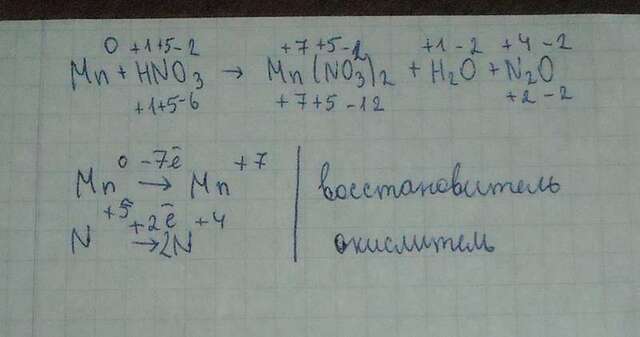 0 +1+5-2 +7+5-2 +1-2 +4-2
Mn + HNO3 → Mn(NO3)2 + H2O + N2O
+1+5-6 +7+5-12 +2-2
Mn0 -7ē → Mn+7 восстановитель
N+5 +2ē → 2N+4 окислитель